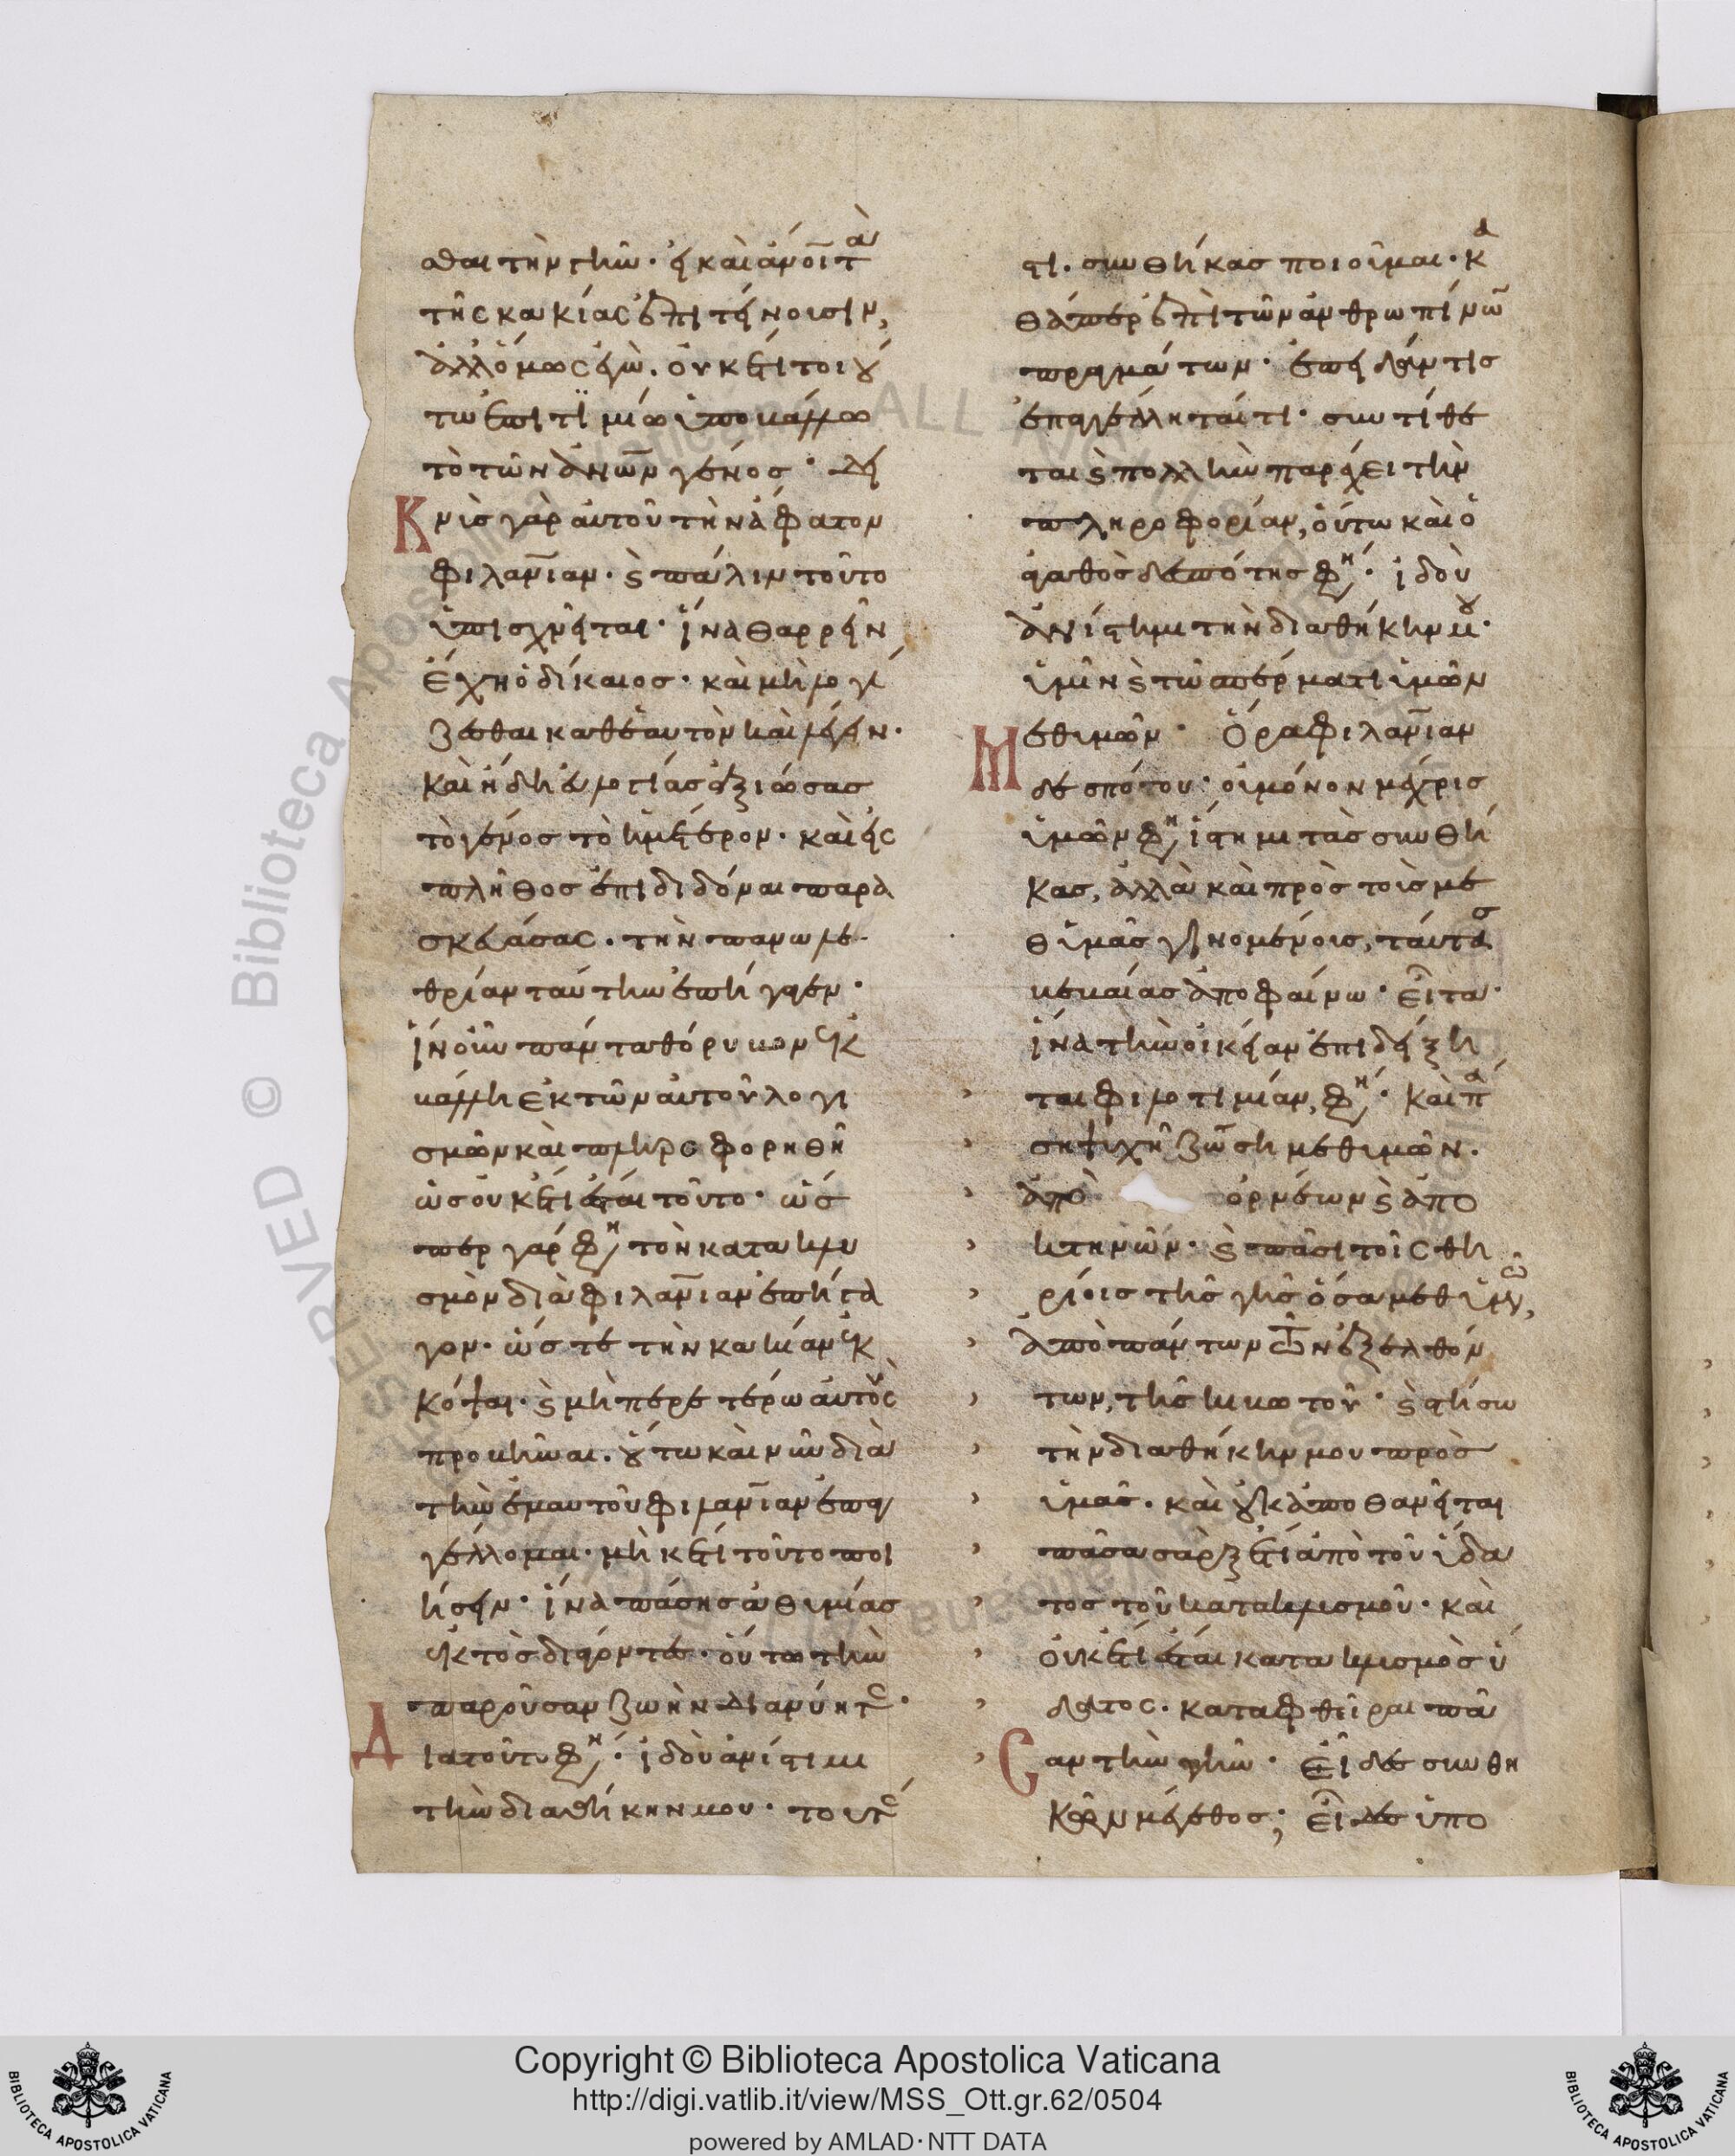 σθαι τὴν γῆν· εἰ καὶ αὐτοὶ τὰ
τῆς κακίας ἐπιτείνοιεν,
ἀλλ' ὅμως ἐγὼ οὐκέτι τοιού
τω ἐπιτιμίω ὑποβάλλω
τὸ τῶν ἀνων γένος· δεί
κνυσι γὰρ αὐτοῦ τὴν ἄφατον
φιλανιαν· καὶ πάλιν τοῦτο
ὑπισχνεῖται· ἵνα θαρρεῖν
ἔχη ὁ δίκαιος· καὶ μὴ λογί
ζεσθαι καθ' ἑαυτὸν καὶ λέγειν·
καὶ ἤδη εὐλογίας ἀξιώσας
τὸ γένος τὸ ἡμέτερον· καὶ εἰς
πλῆθος ἐπιδιδόναι παρα
σκευάσας· τὴν πανωλε
θρίαν ταύτην ἐπήγαγεν·
ἵν' οὖν πάντα θόρυβον ἐκ
βάλλη ἐκ τῶν αὐτοῦ λογι
σμῶν καὶ πληροφορηθῆ
ὡς οὐκέτι ἔσται τοῦτο· ὥσ
περ γάρ φη τὸν κατακλυ
σμὸν διὰ φιλανιαν ἐπήγα
γον· ὥστε τὴν κακίαν ἐκ
κόψαι· καὶ μὴ περετέρω αὐτοὺς
προβῆναι· οὕτω καὶ νῦν διὰ
τὴν ἐμαυτοῦ φιλανιαν ἐπαγ
γέλλομαι· μηκέτι τοῦτο ποι
ήσειν· ἵνα πάσης ἀθυμίας
ἐκτὸς διάγοντες· οὕτω τὴν
παροῦσαν ζωὴν διανύητε·
Διατοῦτο φη· ἰδοὺ ἀνίστημι
τὴν διαθήκην μου· τουτέ
στι· συνθήκας ποιοῦμαι· κα
θάπερ ἐπὶ τῶν ἀνθρωπίνων
πραγμάτων· ἐπειδάν τις
ἐπαγγέλληταί τι· συντίθε
ται καὶ πολλὴν παρέχει τὴν
πληροφορίαν, οὕτω καὶ ὁ
ἀγαθὸς δεσπότης φη· ἰδοὺ
ἀνίστημι τὴν διαθήκην μου·
ὑμῖν καὶ τῶ σπέρματι ὑμῶν
μεθ' ὑμῶν· Ὅρα φιλανιαν
δεσπότου· οὐ μόνον μέχρις
ὑμῶν φη ἵστημι τὰς συνθή
κας, ἀλλὰ καὶ πρὸς τοῖς με
θ' ὑμᾶς γινομένοις, ταύτας
βεβαίας ἀποφαίνω· εἶτα·
ἵνα τὴν οἰκείαν ἐπιδείξη
ται φιλοτιμίαν, φη· καὶ πά
ση ψυχῆ ζώση μεθ' ὑμῶν·
ἀπὸ ὀρνέων καὶ ἀπὸ
κτηνῶν· καὶ πᾶσι τοῖς θη
ρίοις τῆς γῆς ὅσα μεθ' ὑμῶν,
ἀπὸ πάντων τῶν ἐξελθόν
των, τῆς κιβωτοῦ· καὶ στήσω
τὴν διαθήκην μου πρὸς
ὑμᾶς· καὶ οὐκ ἀποθανεῖται
πᾶσα σὰρξ ἔτι ἀπὸ τοῦ ὕδα
τος τοῦ κατακλυσμοῦ· καὶ
οὐκέτι ἔσται κατακλυσμὸς ὕ
δατος· καταφθεῖραι πᾶ
σαν τὴν γῆν· Εἶδες συνθη
κῶν μέγεθος; Εἶδες ὑπο
Copyright © Biblioteca Apostolica Vaticana
http://digi.vatlib.it/view/MSS_Ott.gr.62/0504
powered by AMLAD·NTT DATA
BIBLIOTECA APOSTOLICA VATICANA
BIBLIOTECA APOSTOLICA VATICANA